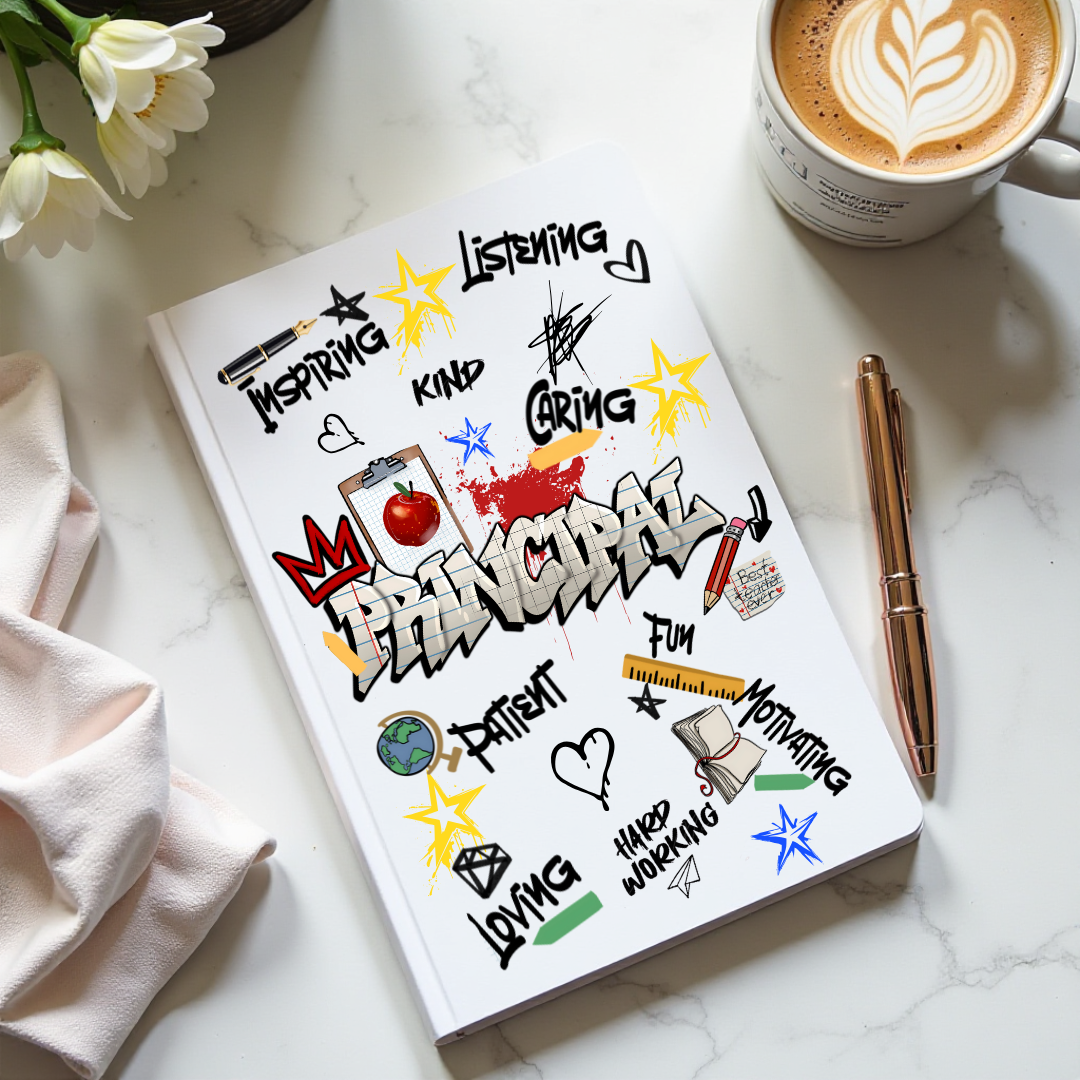 Listening
Inspiring
Kind
Caring
PRINCIPAL
Best
teacher
ever
Fun
Patient
Motivating
HARD
WORKING
Loving